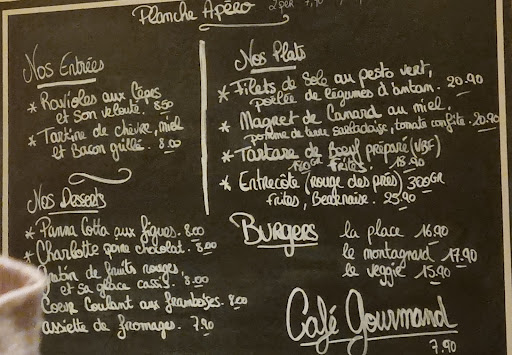 Planche Apéro 2 per 7,90
Nos Entrées
* Ravioles aux Cèpes
et son velouté. 8.50
* Tartine de chèvre, miel
et Bacon grillé. 8.00
Nos Desserts
* Panna Cotta aux figues. 8.00
* Charlotte poire chocolat. 8.00
Gratin de fruits rouges
et sa glace cassis. 8.00
Coeur Coulant aux framboises. 8.00
assiette de fromages. 7.90
Nos Plats
* Filets de Sole au pesto vert,
poêlée de légumes d'antan. 20.90
* Magret de Canard au miel,
pomme de terre sarladaise, tomate confite. 20.90
* Tartare de Boeuf préparé (VBF)
180gr frites. 18.90
* Entrecôte (rouge des prés) 300GR
frites, Bearnaise. 25.90
Burgers
la place 16.90
le montagnard 17.90
le veggie 15.90
Café Gourmand
7.90